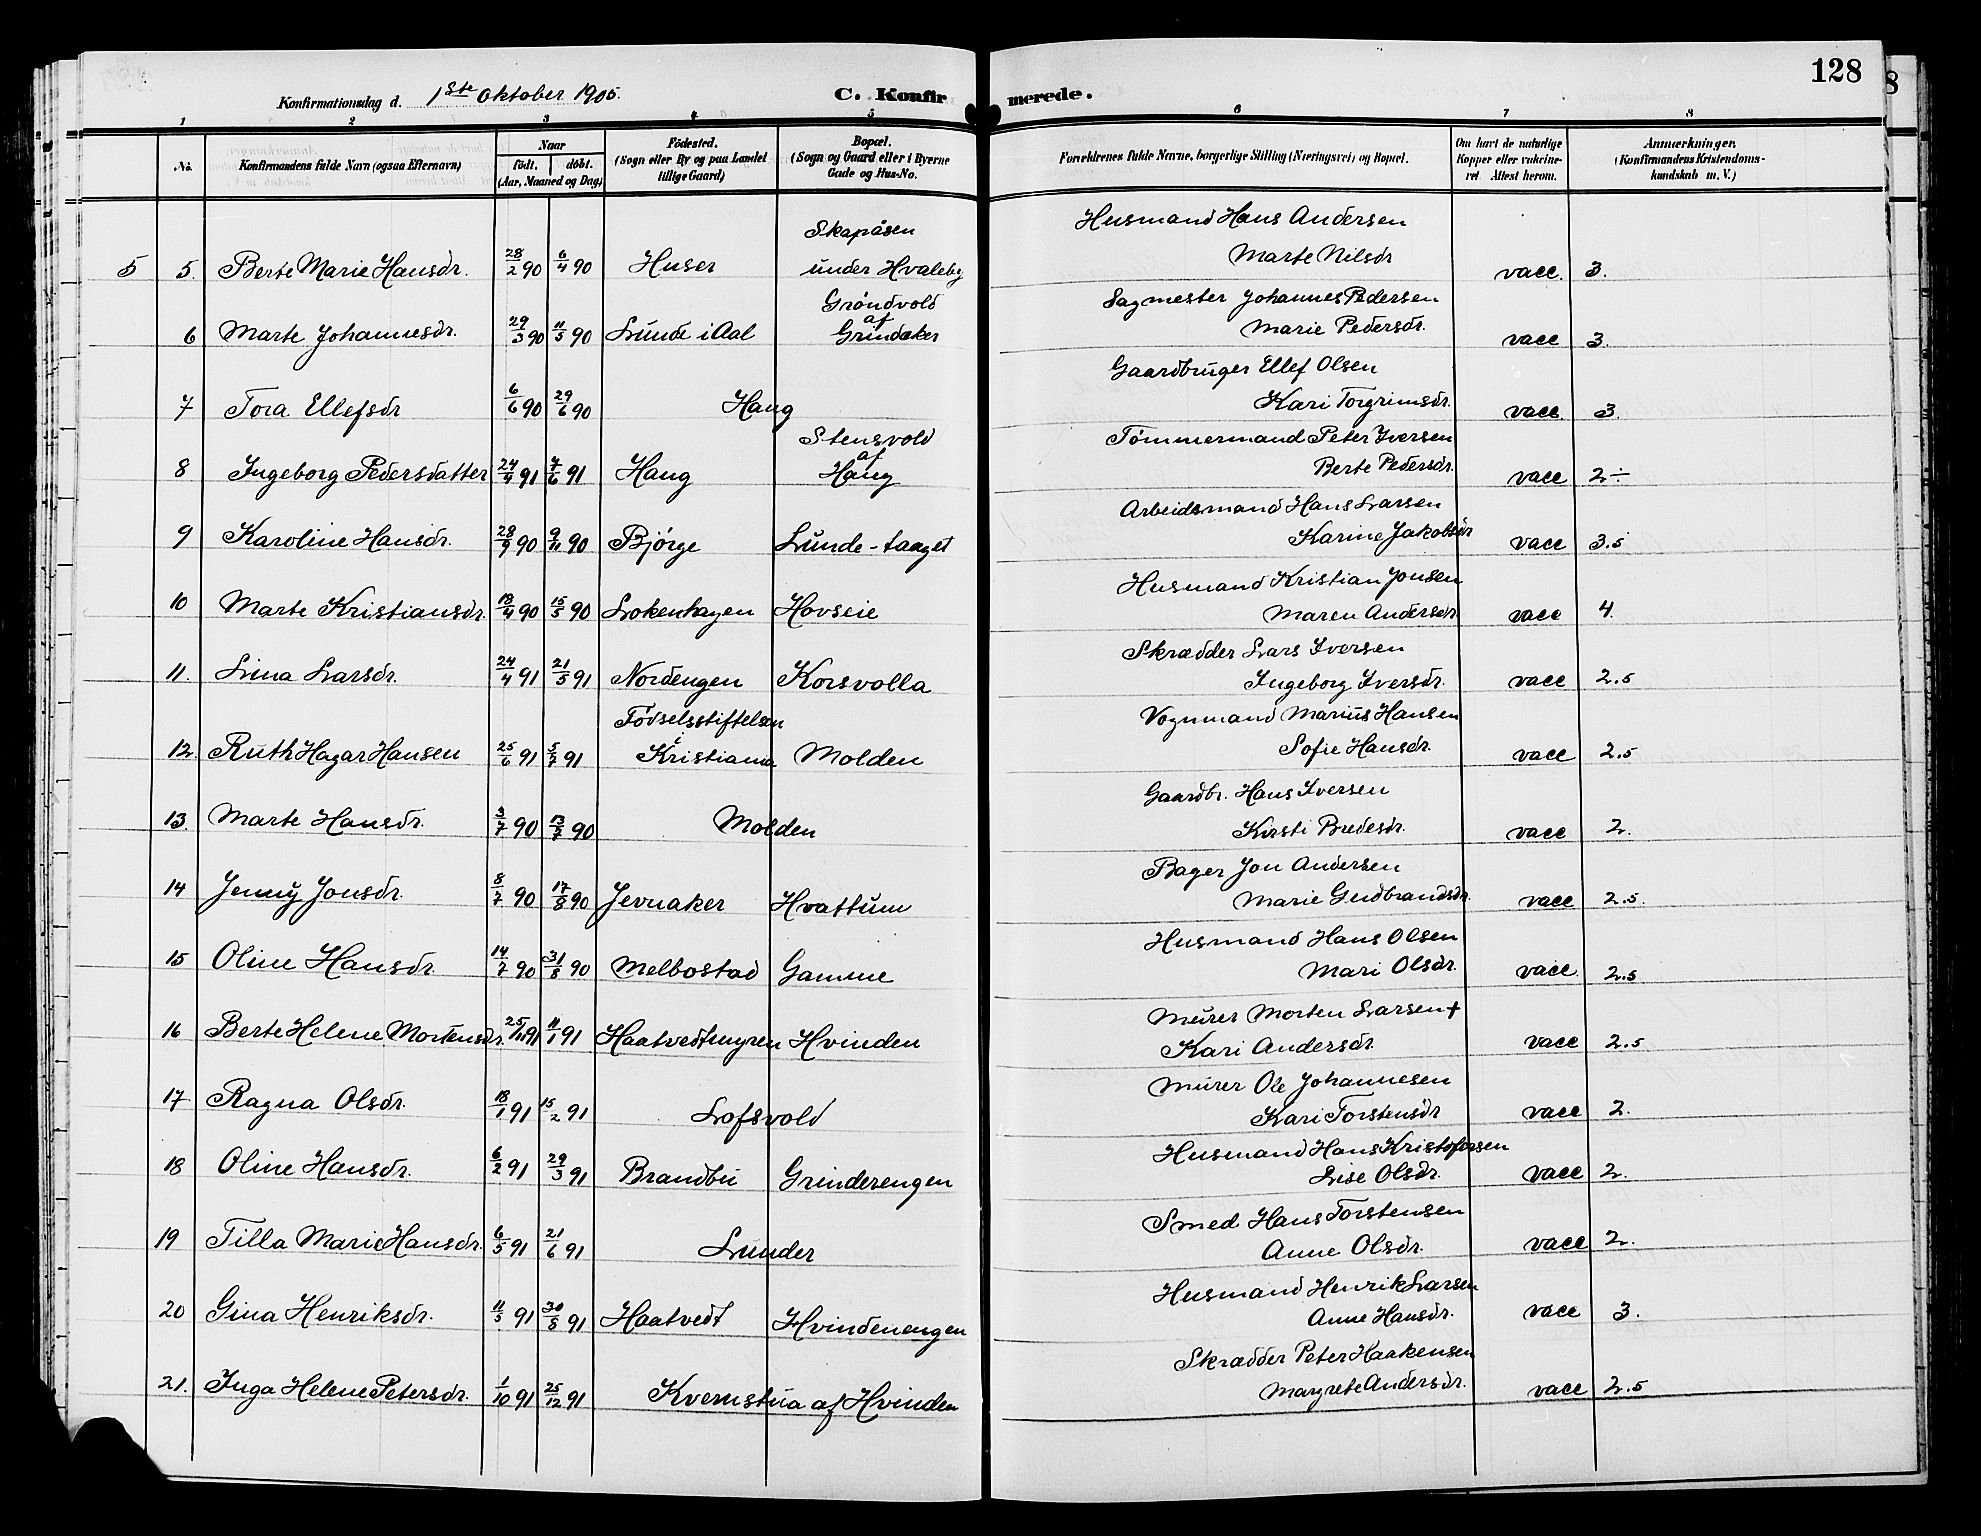 128
Konfirmationsdag d. 1ste Oktober 1905. C. Konfirmerede.
1 2 3 4 5 6 7 8
No. Konfirmandens fulde Navn (ogsaa Efternavn) Naar födt. döbt. (Aar, Maaned og Dag) Födested. (Sogn eller By og paa Landet tillige Gaard) Bopæl. (Sogn og Gaard eller i Byerne Gade og Hus-No. Forældrenes fulde Navne, borgerlige Stilling (Næringsvei) og Bopæl. Om havt de naturlige Kopper eller vakcineret Attest herom. Anmærkninger. (Konfirmandens Kristendomskundskab m. V.)
Skapåsen Husmand Hans Andersen
5 5. Berte Marie Hansdr. 28/2 90 6/4 90 Huser under Hvaleby Marte Nilsdr vacc. 3.
Gröndvold Sagmester Johannes Pedersen
6 Marte Johannesdr. 29/3 90 11/5 90 Lunde i Aal af Grindaker Marie Pedersdr. vacc 3.
Gaardbruger Ellef Olsen
7 Tora Ellefsdr 6/6 90 29/6 90 Haug Kari Torgrimsdr. vacc 3.
Stensvold Tömmermand Peter Iversen
8 Ingeborg Pedersdatter 24/4 91 7/6 91 Haug af Haug Berte Pedersdr. vacc 2÷
Arbeidsmand Hans Larsen
9 Karoline Hansdr. 28/9 90 9/11 90 Bjórge Lunde-taaget Karine Jakobsdr vacc 3.5
Husmand Kristian Jonsen
10 Marte Kristiansdr. 18/4 90 15/5 90 Lokenhagen Hovseie Maren Andersdr vacc 4.
Skrædder Lars Iversen
11. Lina Larsdr. 24/4 91 21/5 91 Nordengen Korsvolla Ingeborg Iversdr. vacc 2.5
Födselsstiftelsen Vognmand Marius Hansen
12. Ruth Hagar Hansen 25/6 91 5/7 91 i Kristiania Molden Sofie Hansdr. vacc 2.5
Gaardbr. Hans Iversen
13. Marte Hansdr. 3/7 90 13/7 90 Molden Kirsti Bredesdr. vacc 2.
Bager Jon Andersen
14 Jenny Jonsdr. 8/7 90 17/8 90 Jevnaker Hvattum Marie Gudbrandsdr. vacc 2.5.
Husmand Hans Olsen
15 Oline Hansdr. 14/7 90 31/8 90 Melbostad Gamme Mari Olsdr. vacc. 2.5
Murer Morten Larsen +
16 Berte Helene Mortensdr. 91 11/1 91 Haatvedtmyren Hvinden Kari Andersdr. vacc 2.5
Murer Ole Johannesen
17 Ragna Olsdr. 18/1 91 15/2 91 Lofsvold Kari Torstensdr vacc 2.
Husmand Hans Kristofersen
18 Oline Hansdr. 6/2 91 29/3 91 Brandbu Grinderengen Lise Olsdr. vacc 2.
Smed Hans Torstensen
19 Tilla Marie Hansdr. 6/5 91 21/6 91 Lunder Anne Olsdr. vacc 2.
Husmand Henrik Larsen
20 Gina Henriksdr. 11/5 91 30/8 91 Haatvedt Hvindenengen Anne Hansdr. vacc 3.
Skrædder Peter Haakensen
21. Inga Helene Petersdr. 1/10 91 25/12 91 Kvernstua af Hvinden Margrete Andersdr. vacc 2.5